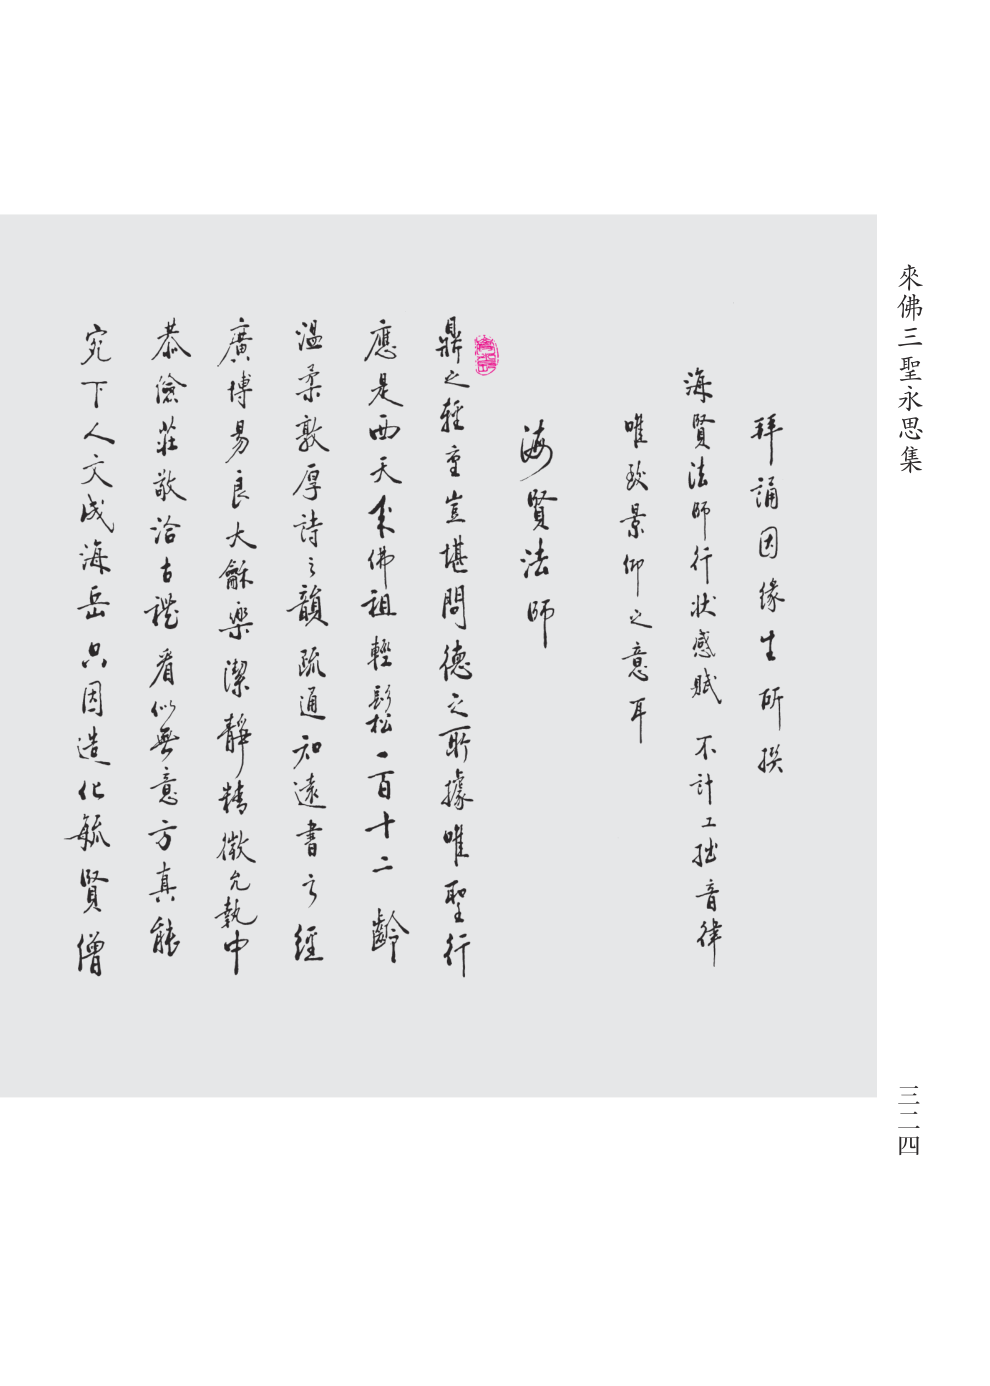 來佛三聖永思集
拜誦因緣生所撰
海賢法師行狀感賦 不計工拙音律
唯致景仰之意耳
海賢法師
鼎之輕重豈堪問德之所據唯聖行
應是西天來佛祖輕鬆一百十二齡
溫柔敦厚詩之韻疏通知遠書之經
廣博易良大龢樂潔靜精微允執中
恭儉莊敬洽古禮看似無意方真能
宛下人文成海岳只因造化毓賢僧
三二四